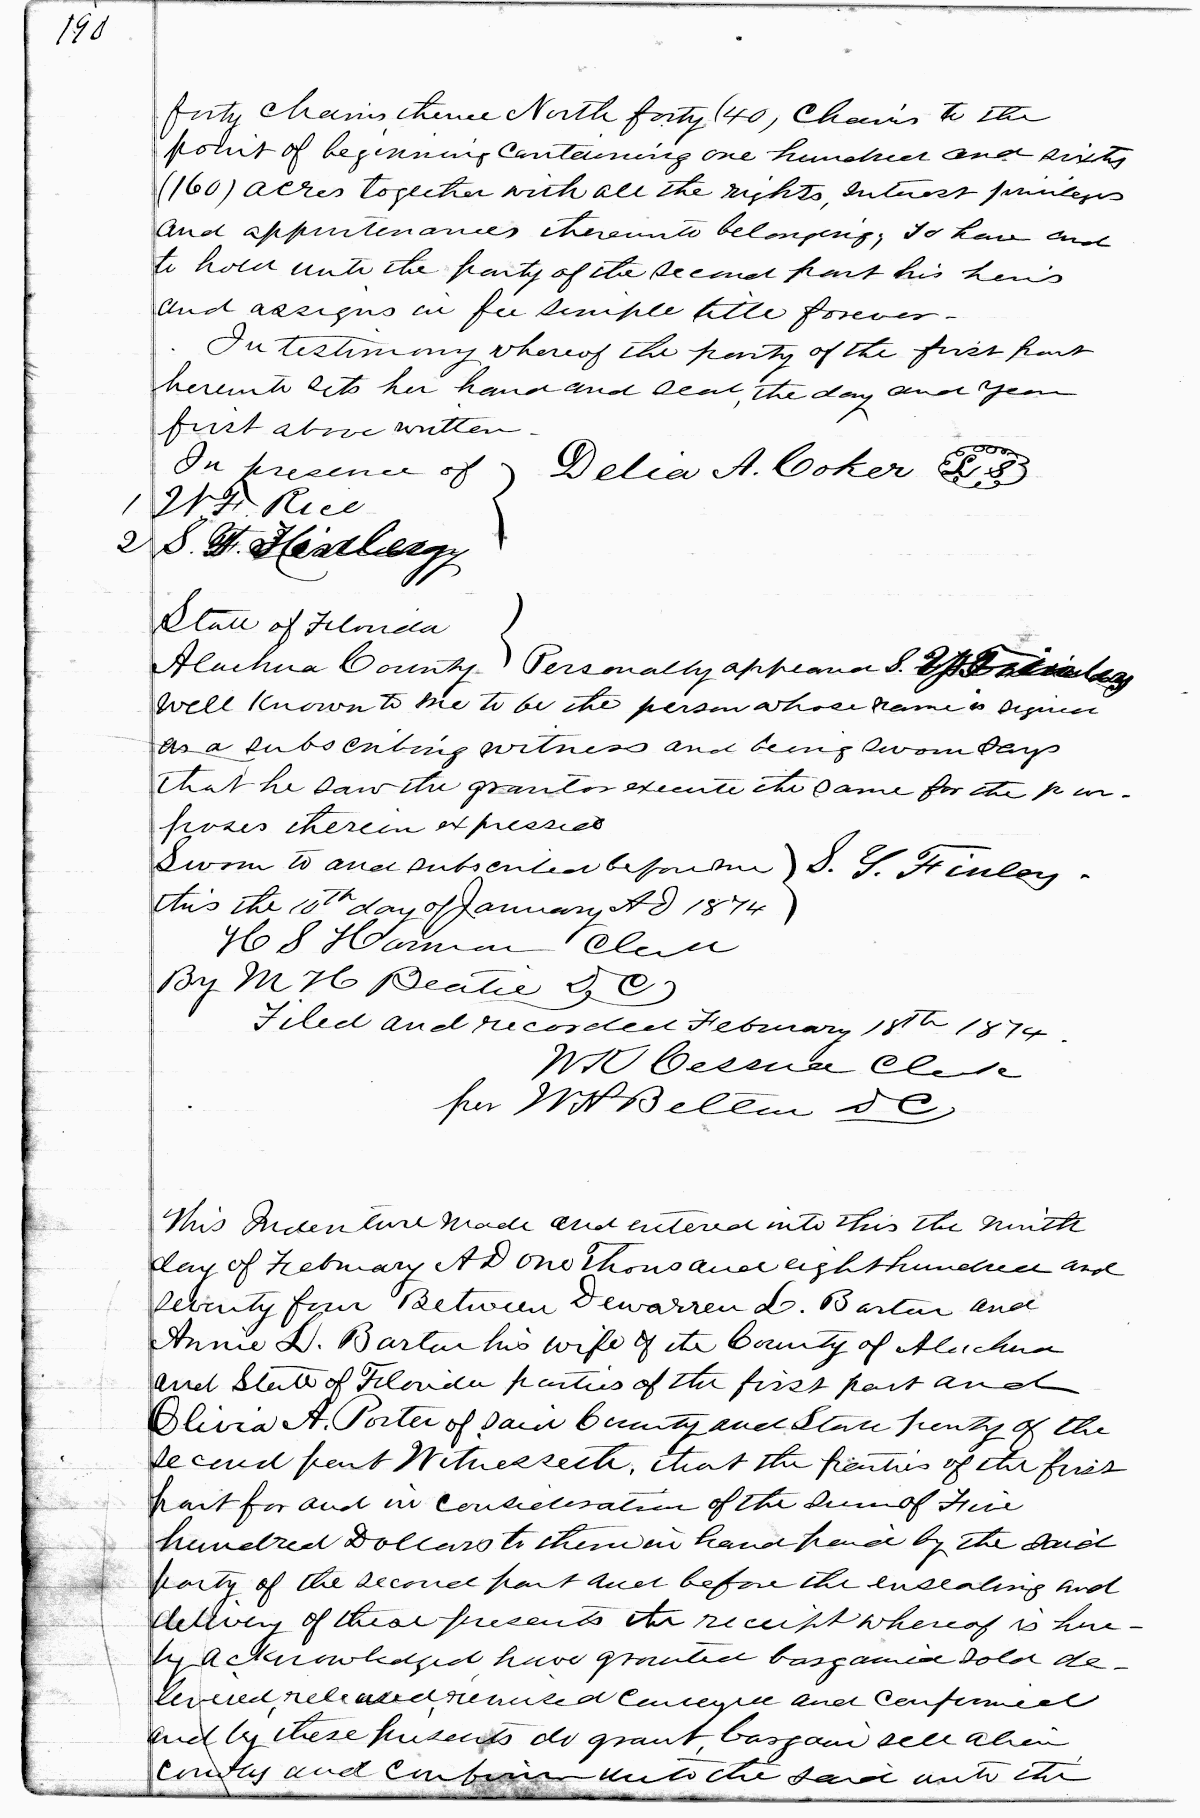 190
forty chains thence North forty (40) Chains to the
point of beginning containing one hundred and sixty
(160) acres together with all the rights, interest privileges
and appurtenances thereunto belonging; To have and
to hold unto the party of the second part his heirs
and assigns in fee simple title forever.
In testimony whereof the party of the first part
hereunto sets her hand and seal, the day and year
first above written.
In presence of } Delia A. Coker L.S
1 W. F. Rice
2 S.
State of Florida }
Alachua County } Personally appeared S.
well known to me to be the person whose name is signed
as a subscribing witness and being sworn says
that he saw the grantor execute the same for the pur-
poses therein expressed
Sworn to and subscribed before me } S. Y. Finley.
this the 10th day of January AD 1874 }
H S Harmon Clerk
By M H Beatie D, C,
Filed and recorded February 18th 1874.
W K Cessna Clerk
per W H Belton D C,
This Indenture made and entered into this the ninth
day of February AD one Thousand eight hundred and
seventy four Between Dewarren L. Barton and
Annie L. Barton his wife of the County of Alachua
and State of Florida parties of the first part and
Olivia A. Porter of said County and State party of the
second part Witnesseth, that the parties of the first
part for and in consideration of the sum of Five
hundred Dollars to them in hand paid by the said
party of the second part and before the ensealing and
delivery of these presents the receipt whereof is here-
by acknowledged, have granted bargained sold de-
livered, released, remised conveyed and confirmed
and by these presents do grant, bargain sell alien,
convey and confirm unto the said unto the